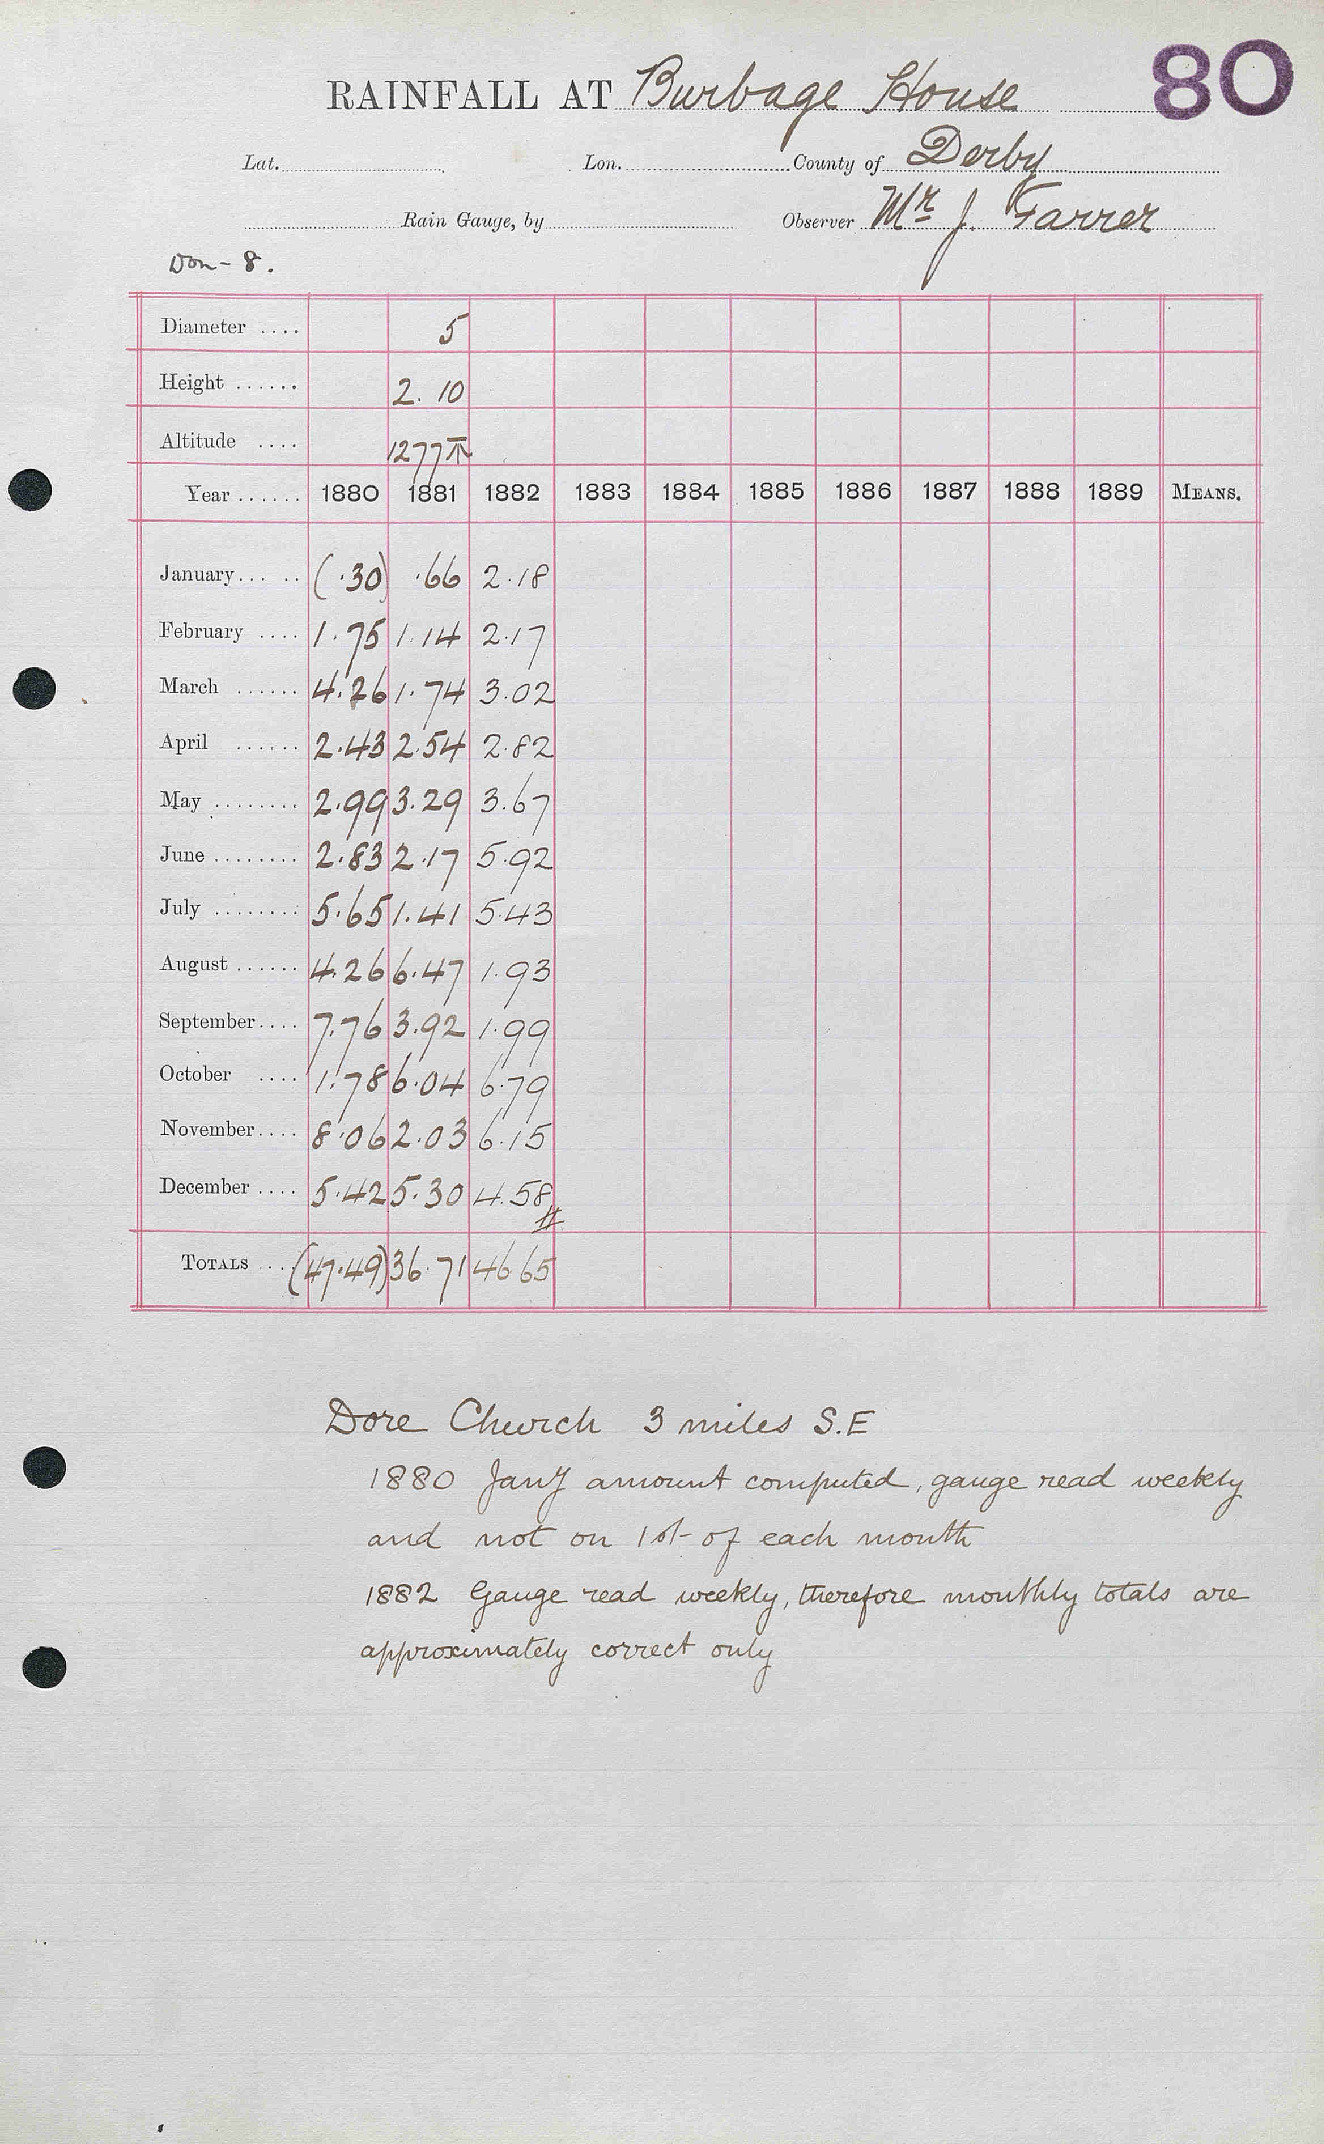 80
RAINFALL AT Burbage House
Lat. Lon. County of Derby
Rain Gauge, by Observer Mr J. Farrer
Don - 8.
Diameter .... 5
Height ...... 2. 10
Altitude .... 1277
Year ...... 1880 1881 1882 1883 1884 1885 1886 1887 1888 1889 MEANS.
January... .. (.30) .66 2.18
February .... 1.75 1.14 2.17
March ...... 4.26 1.74 3.02
April ...... 2.43 2.54 2.82
May ........ 2.99 3.29 3.67
June ........ 2.83 2.17 5.92
July ........ 5.65 1.41 5.43
August ...... 4.26 6.47 1.93
September.... 7.76 3.92 1.99
October .... 1.78 6.04 6.79
November.... 8.06 2.03 6.15
December .... 5.42 5.30 4.58
TOTALS ... (47.49) 36.71 46.65
Dore Church 3 miles S.E
1880 Jany amount computed, gauge read weekly
and not on 1st of each month
1882 Gauge read weekly, therefore monthly totals are
approximately correct only